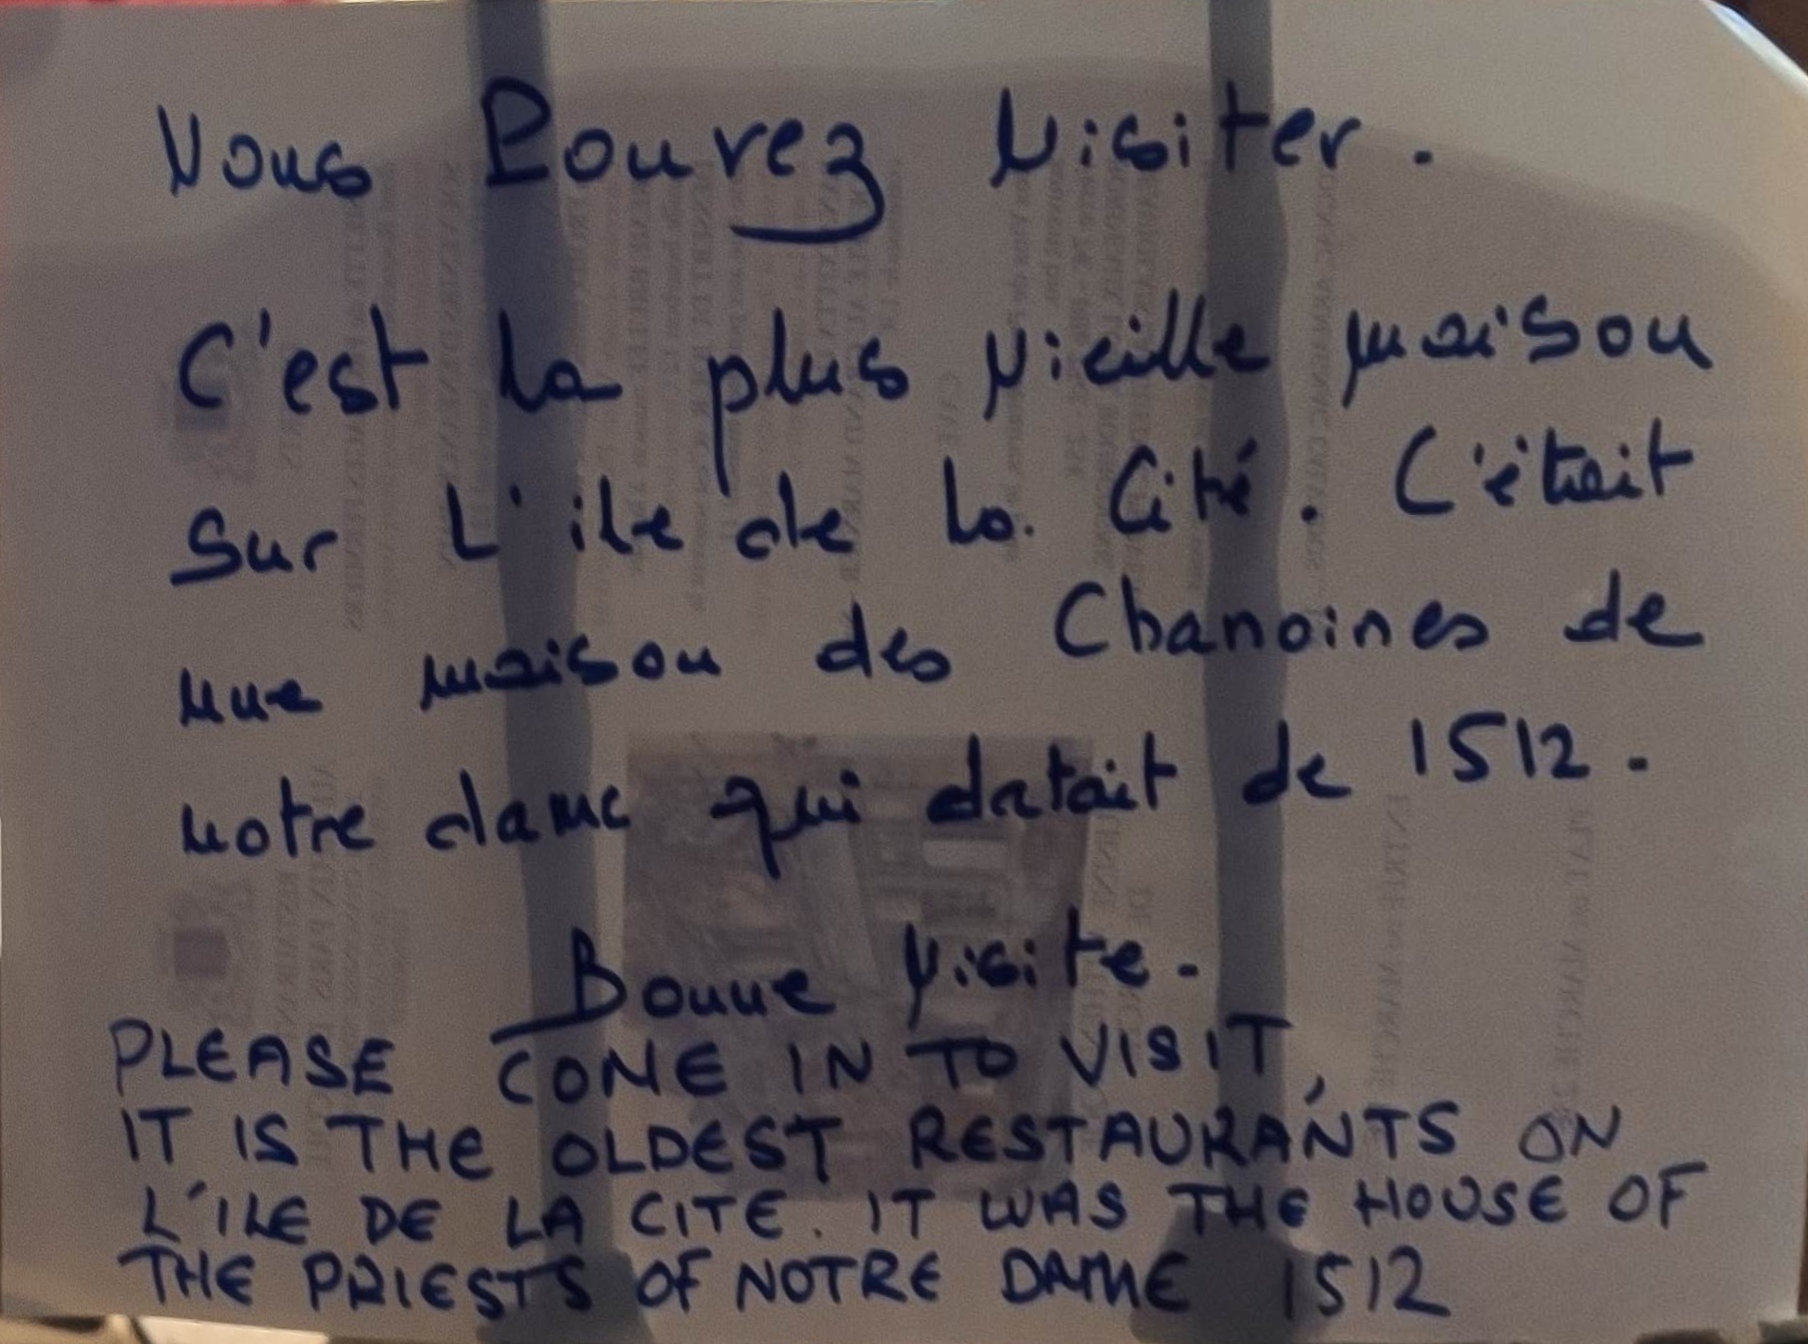 Vous Pouvez Visiter.
C'est la plus vieille maison
sur L'ile de la Cité. C'était
une maison des Chanoines de
notre dame qui datait de 1512.
Bonne Visite.
PLEASE COME IN TO VISIT,
IT IS THE OLDEST RESTAURANTS ON
L'ILE DE LA CITE. IT WAS THE HOUSE OF
THE PRIESTS OF NOTRE DAME 1512